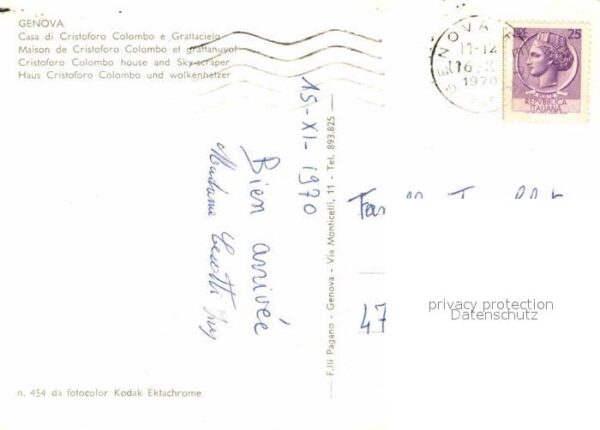 GENOVA
Casa di Cristoforo Colombo e Grattacielo
Maison de Cristoforo Colombo et grattanuvol
Cristoforo Colombo house and Sky-scraper
Haus Cristoforo Colombo und wolkenhetzer
GENOVA
11-12
16
1970
25
REPVBBLICA
ITALIANA
15-XI-1970
Bien arrivée
Madame
F.lli Pagano - Genova - Via Monticelli, 11 - Tel. 893.825
47
privacy protection
Datenschutz
n. 454 da fotocolor Kodak Ektachrome